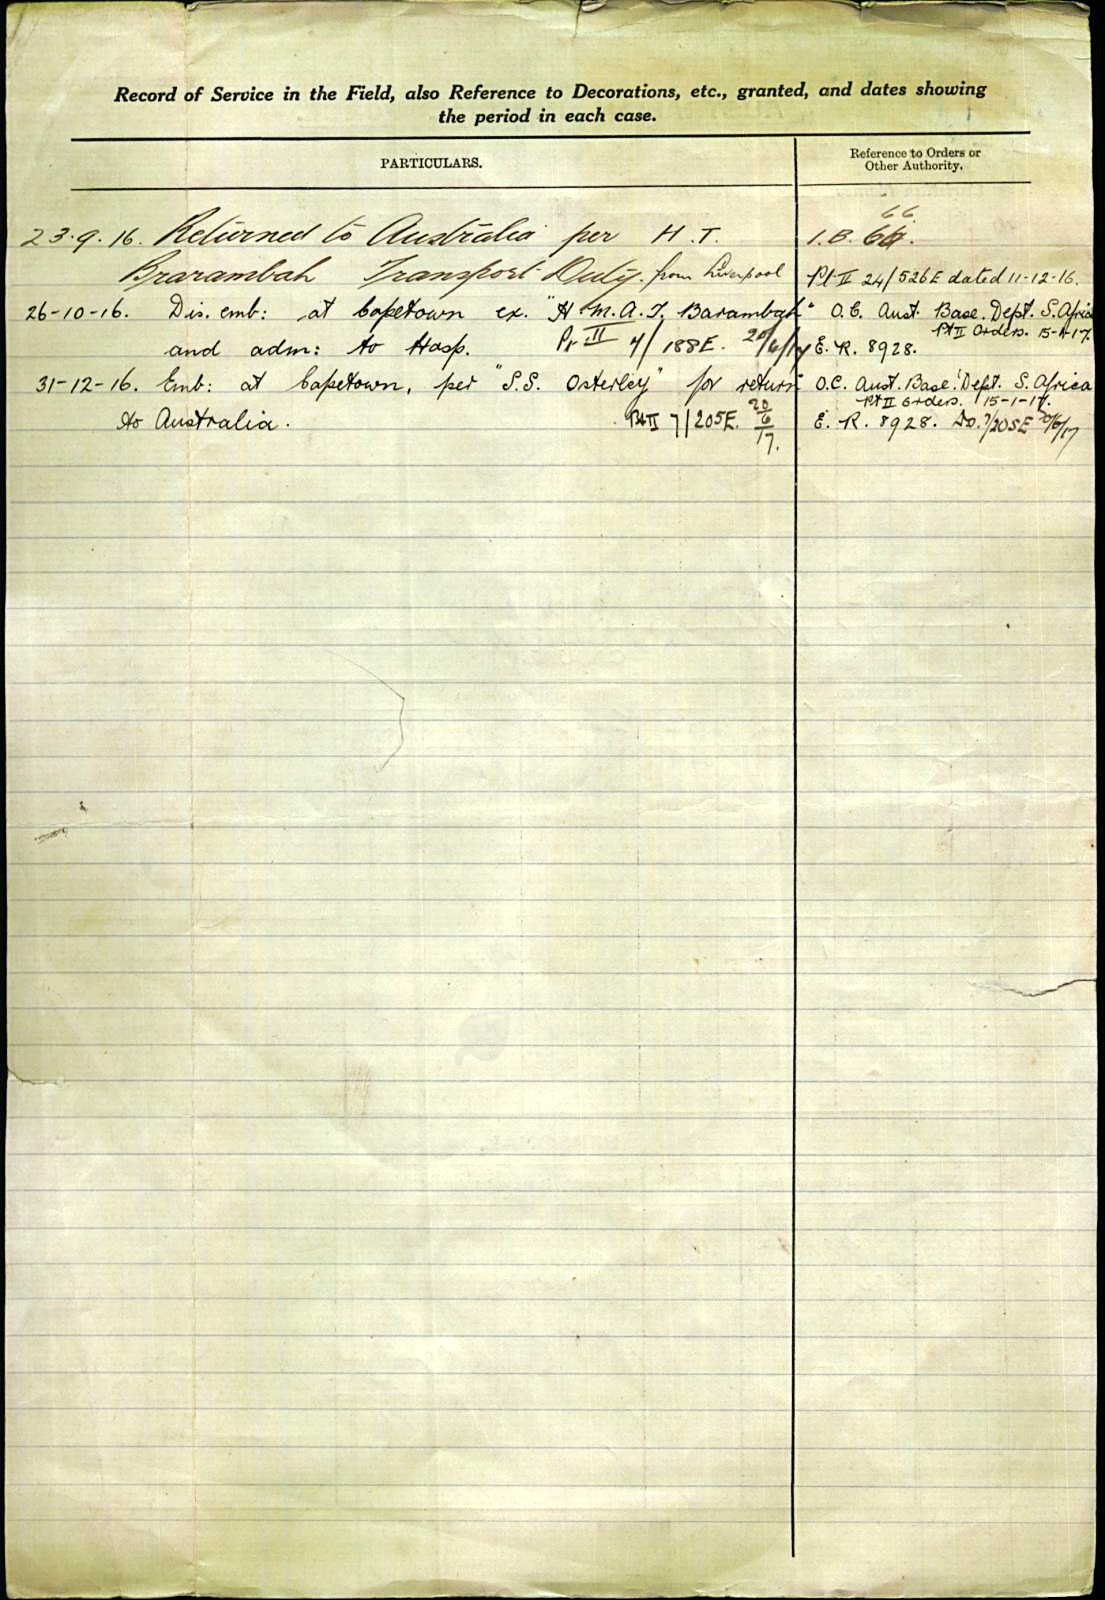 Record of Service in the Field, also Reference to Decorations, etc., granted, and dates showing
the period in each case.
PARTICULARS.
Reference to Orders or
Other Authority.
66
23.9.16. Returned to Australia per H.T. I.B. 66.
Brarambah Transport Duty. from Liverpool Pt II 24/526E dated 11-12-16.
26-10-16. Dis. emb: at Capetown ex. "H.M.A.T. Barambah" O.C. Aust. Base. Dept. S. Africa
Pt II Orders. 15-1-17.
and adm: to Hosp. Pt II 4/188E. 20/6/17 E.R. 8928.
31-12-16. Emb: at Capetown, per "S.S. Osterley" for return O.C. Aust. Base. Dept. S. Africa
Pt II Orders. 15-1-17.
to Australia. Pt II 7/205E. 20/6/17. E.R. 8928. Do. 7/205E 20/6/17